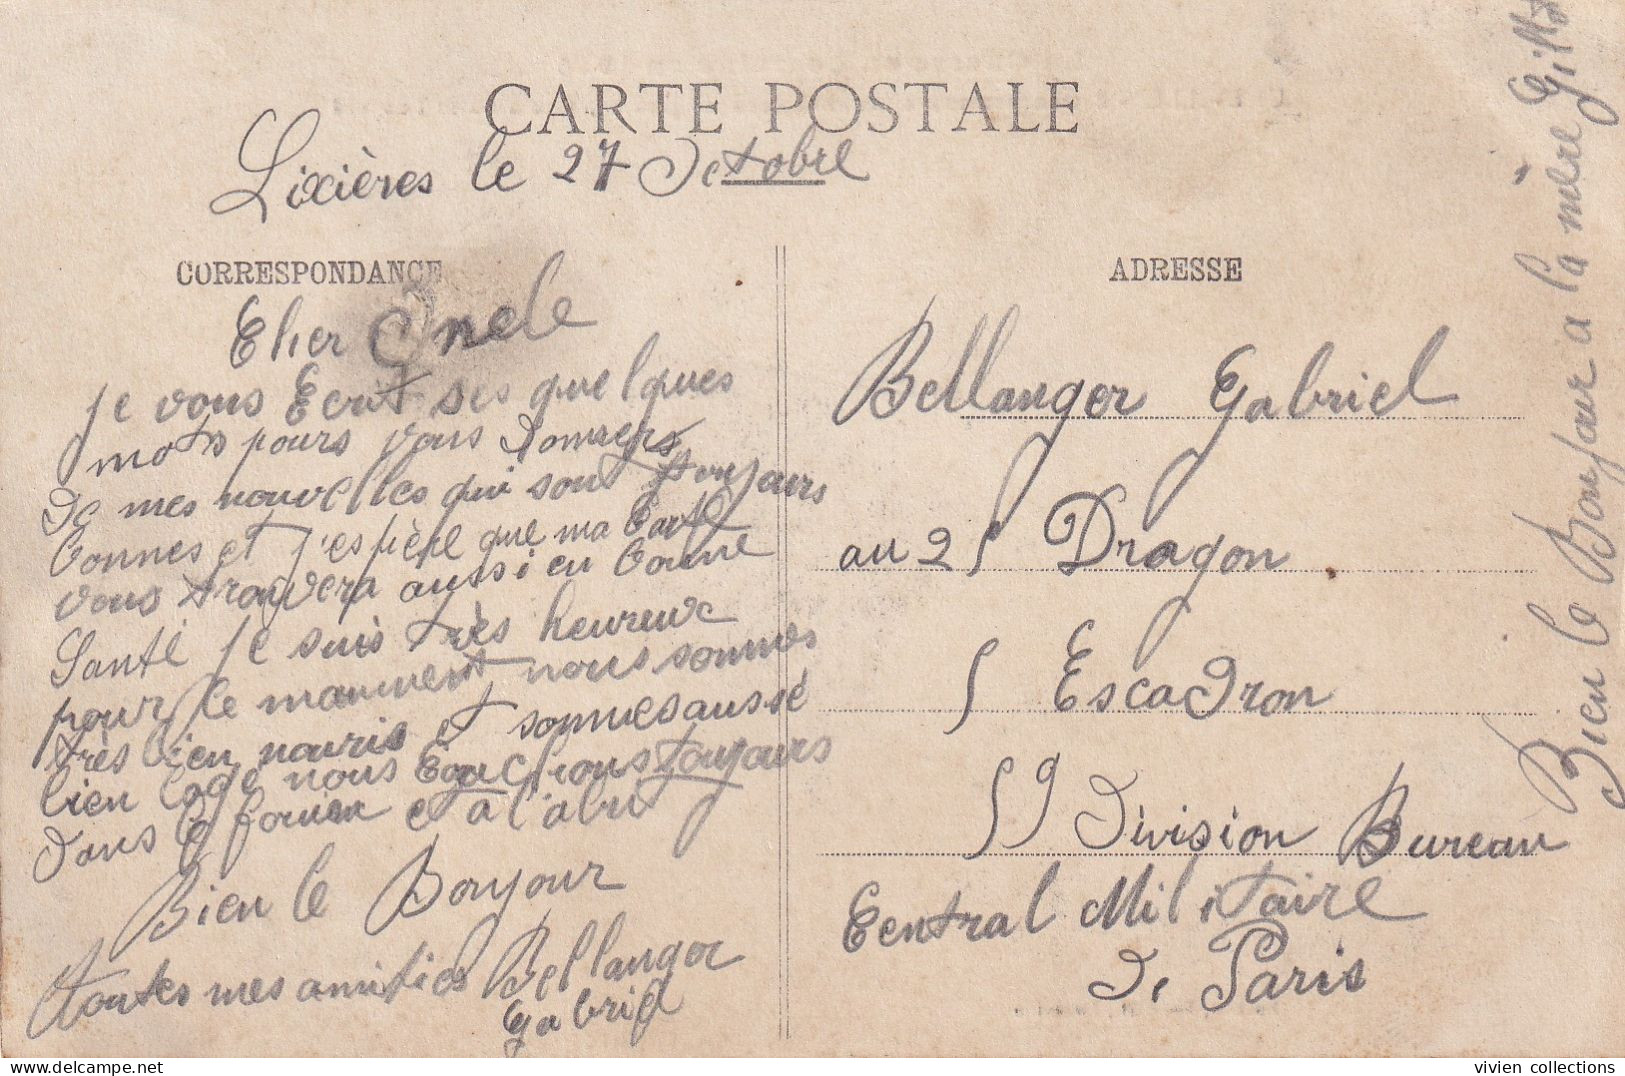 CARTE POSTALE
Lixières le 27 Octobre
CORRESPONDANCE
Cher Oncle
Je vous Ecrit ses quelques
mots pours vous Donners
De mes nouvelles qui sont toujours
bonnes et j'espère que ma Carte
vous trouvera aussi en bonne
Santé je suis très heureux
pour le mauument nous sommes
très bien nouris et sommes aussé
bien logé nous Couchons toujours
Dans le et à l'abri
Bien le Bonjour
toutes mes amitiés Bellanger
Gabriel
ADRESSE
Bellanger Gabriel
au 25 Dragon
5 Escadron
59 Division Bureau
Central Militaire
De Paris
Bien le Bonjour a la mère
vivien collections